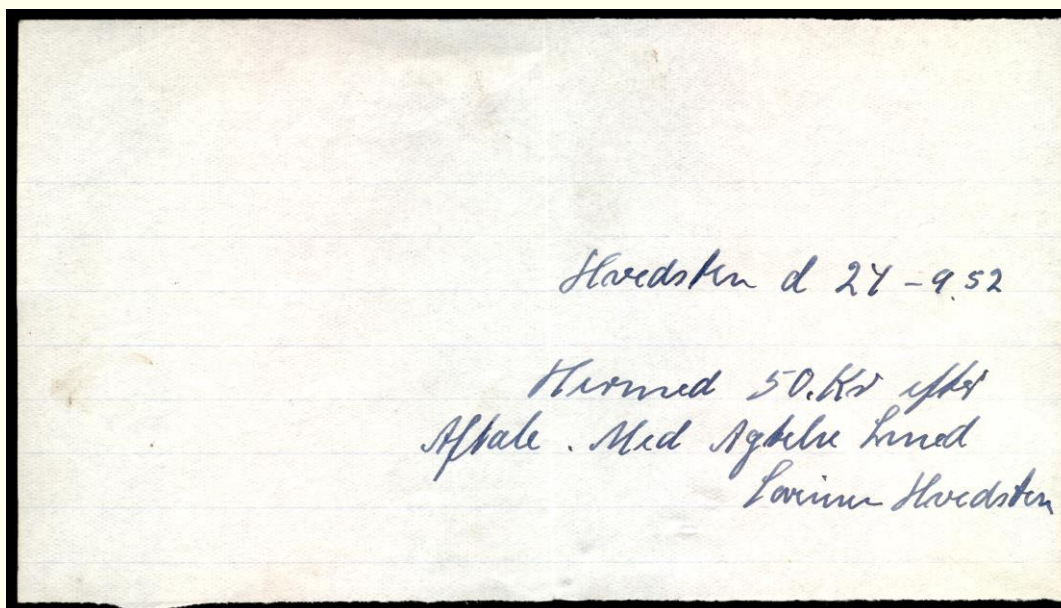 Hvedsten d 24 - 9.52
Hermed 50. Kr efter
Aftale . Med Agtelse
Hvedsten